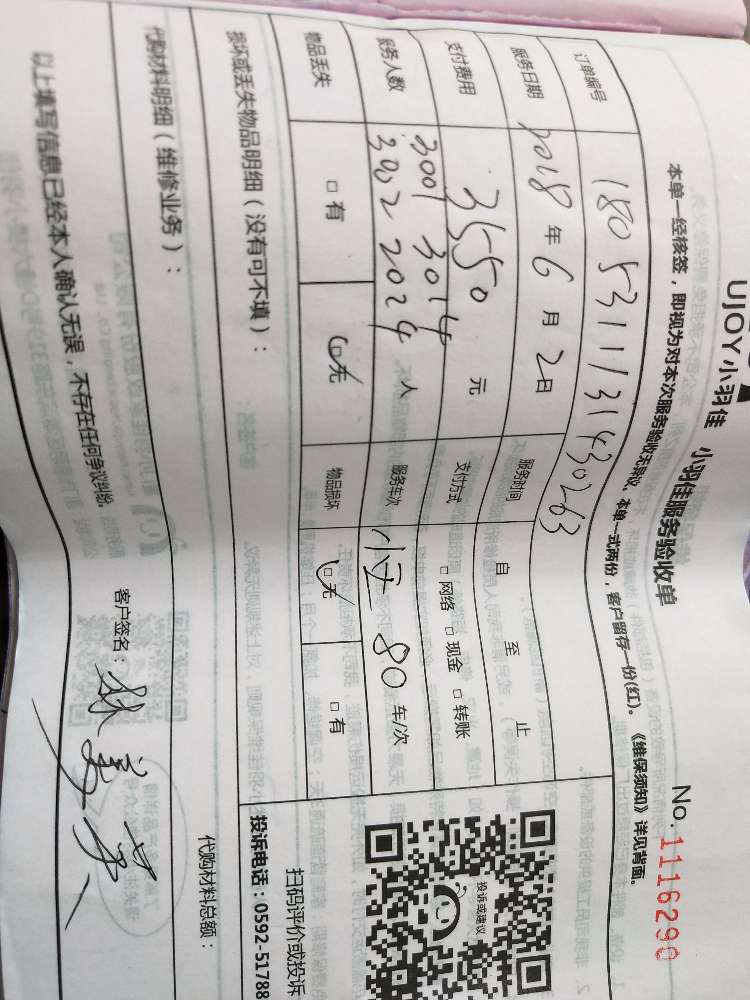 UJOY小羽佳 小羽佳服务验收单
No.1116290
本单一经核签，即视为对本次服务验收无异议。本单一式两份，客户留存一份(红)。《维保须知》详见背面。
订单编号 1805311131430263
服务日期 2018年6月2日 服务时间 自 至 止
支付费用 3550元 支付方式 □网络 □现金 □转账
服务人数 3001 3014 3022 2024 人 服务车次 80车/次
物品丢失 □有 □无 物品损坏 □无 □有
损坏或丢失物品明细（没有可不填）：
投诉或建议
扫码评价或投诉
投诉电话：0592-51788
代购材料明细（维修业务）：
代购材料总额：
以上填写信息已经本人确认无误，不存在任何争议纠纷。
客户签名：